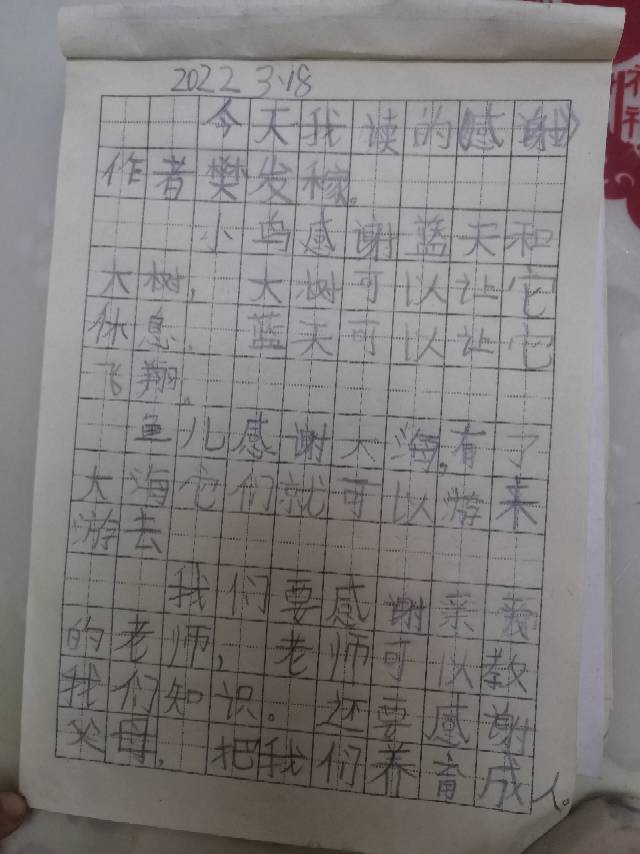 2022 3.18
今天我读的《感谢》
作者樊发稼。
小鸟感谢蓝天和
大树，大树可以让它
休息，蓝天可以让它
飞翔。
鱼儿感谢大海，有了
大海它们就可以游来
游去
我们要感谢亲爱
的老师，老师可以教
我们知识。还要感谢
父母，把我们养育成人。